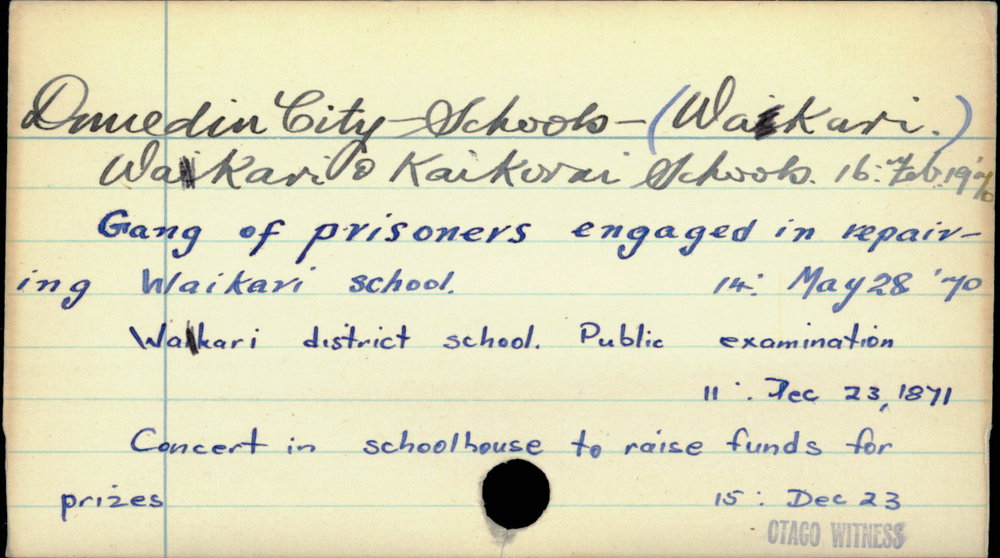 Dunedin City - Schools - (Waikari.)
Waikari & Kaikorai Schools. 16: Feb. 19 '70
Gang of prisoners engaged in repair-
ing Waikari school. 14: May 28 '70
Waikari district school. Public examination
11: Dec 23, 1871
Concert in schoolhouse to raise funds for
prizes 15: Dec 23
OTAGO WITNESS